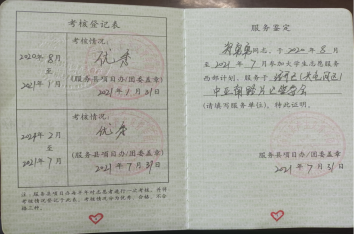 考核登记表
2020年8月
至
2021年1月
考核情况:
优秀
(服务县项目办/团委盖章)
2021年1月31日
2021年2月
至
2021年7月
考核情况:
优秀
(服务县项目办/团委盖章)
2021年7月31日
注:服务县项目办每半年对志愿者进行一次考核,并将
考核情况登记于此表。考核情况分为优秀、合格、不合
格三种。
服务鉴定
同志,于2020年8月
至2021年7月参加大学生志愿服务
西部计划,服务于
(请填写服务单位),特此证明。
服务县项目办/团委盖章
2021年7月31日